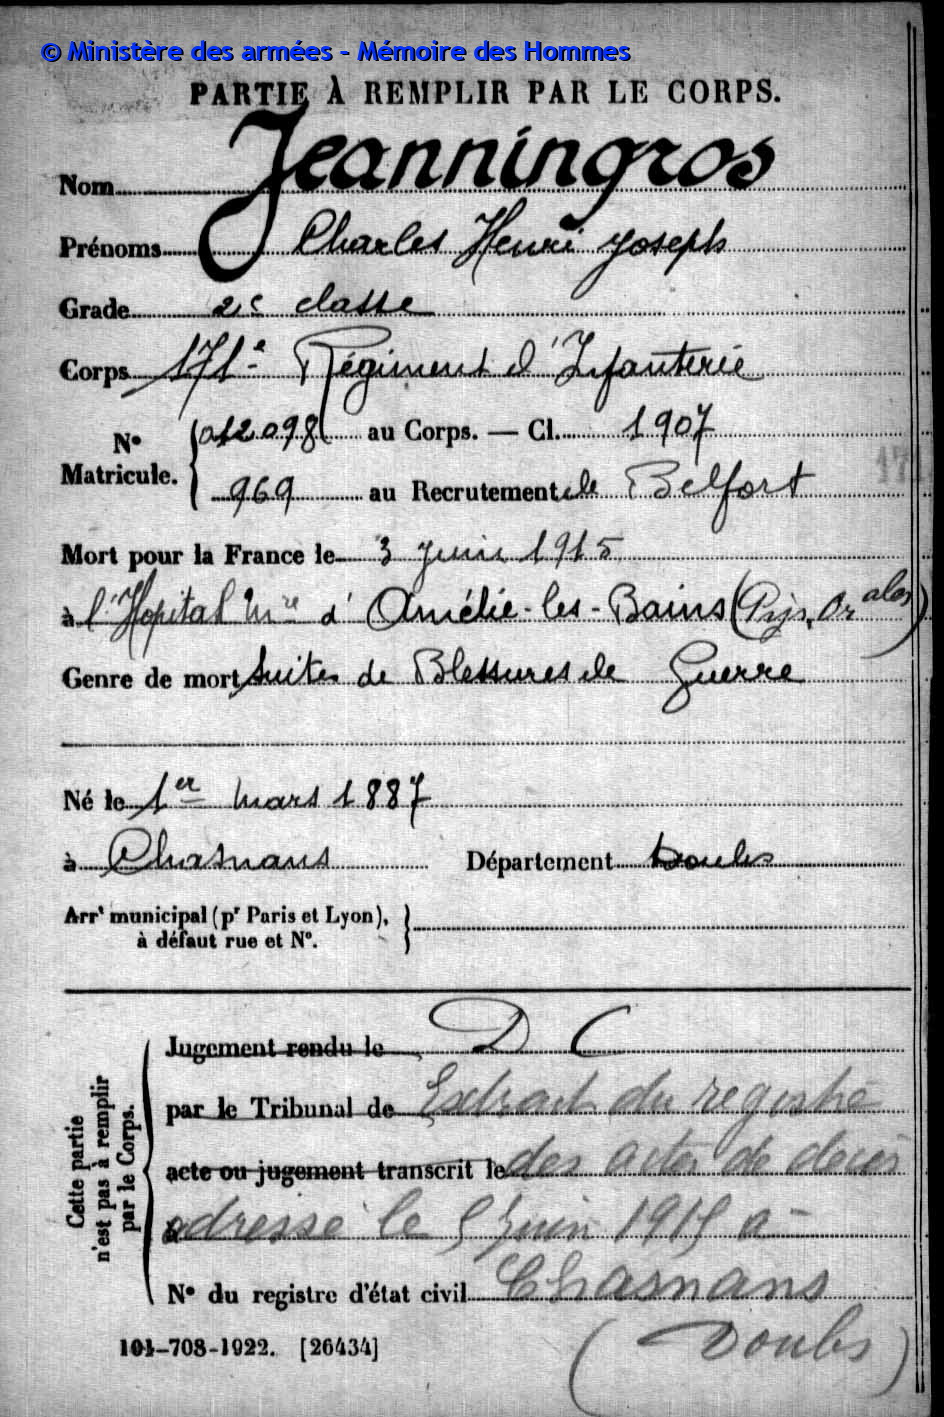 © Ministère des armées - Mémoire des Hommes
PARTIE À REMPLIR PAR LE CORPS.
Nom Jeanningros
Prénoms Charles Henri Joseph
Grade 2e classe
Corps 171e Régiment d'Infanterie
N° Matricule. { 012098 au Corps. — Cl. 1907
969 au Recrutement de Belfort
Mort pour la France le 3 juin 1915
à l'Hopital Mre d'Amélie-les-Bains (Pyr. Orales)
Genre de mort suites de Blessures de Guerre
Né le 1er mars 1887
à Chasnans Département Doubs
Arrt municipal (pr Paris et Lyon),
à défaut rue et N°.
Cette partie n'est pas à remplir par le Corps.
Jugement rendu le D C
par le Tribunal de Extrait du registre
acte ou jugement transcrit le des actes de décès
à adressé le 5 juin 1915 a
N° du registre d'état civil Chasnans
(Doubs)
101-708-1922. [26434]